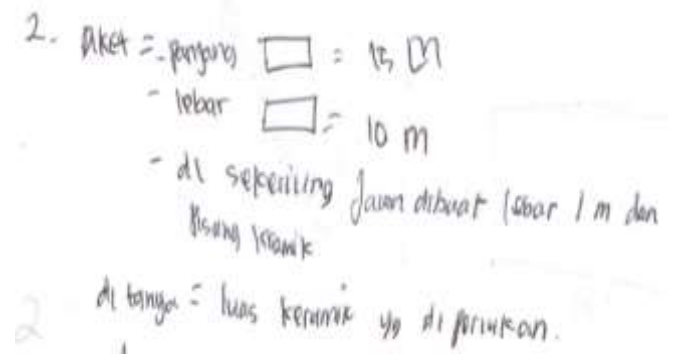 2. Diket = - panjang □ = 15 m
- lebar □ = 10 m
- di sekeliling Jalan dibuat lebar 1 m dan
Pisang keramik
di tanya = luas keramik yg di perlukan.